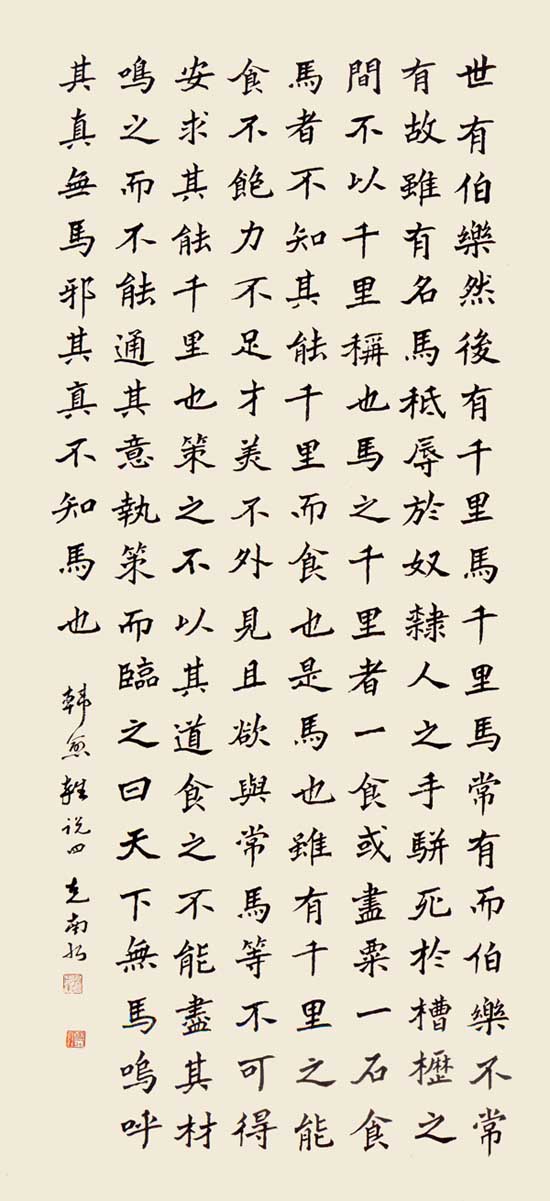 世有伯樂然後有千里馬千里馬常有而伯樂不常
有故雖有名馬秖辱於奴隸人之手駢死於槽櫪之
間不以千里稱也馬之千里者一食或盡粟一石食
馬者不知其能千里而食也是馬也雖有千里之能
食不飽力不足才美不外見且欲與常馬等不可得
安求其能千里也策之不以其道食之不能盡其材
鳴之而不能通其意執策而臨之曰天下無馬嗚呼
其真無馬邪其真不知馬也
韩愈雜说四 克南书